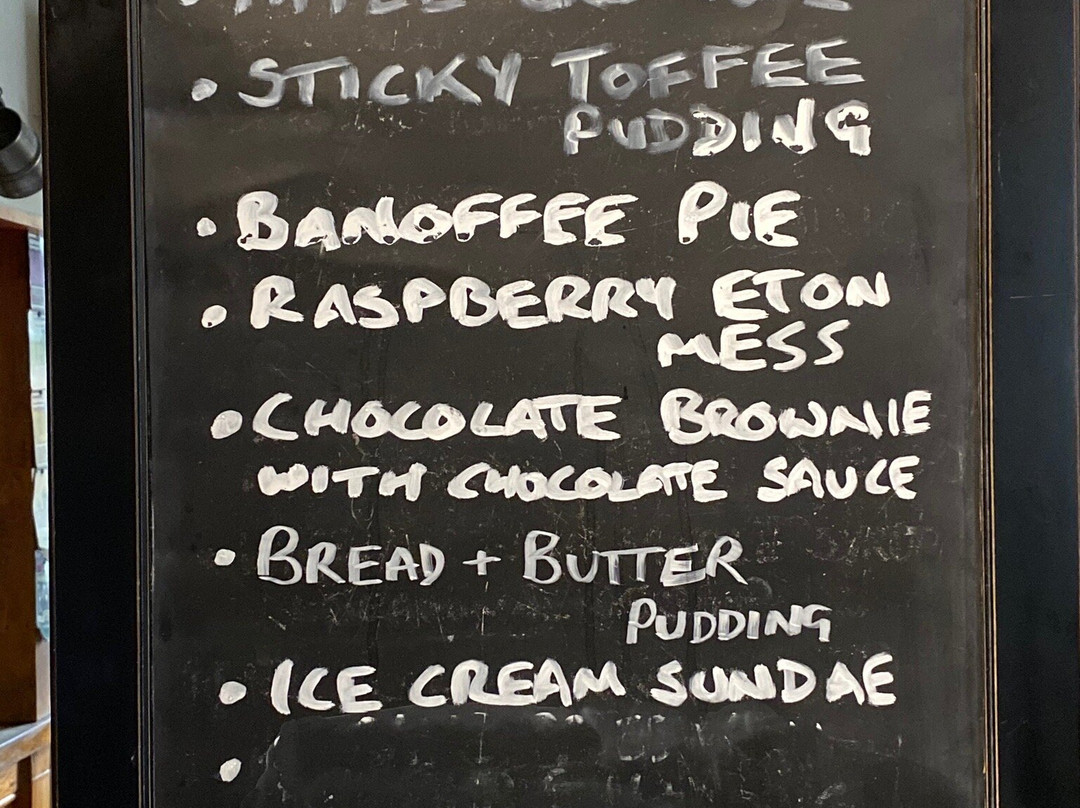 • STICKY TOFFEE
PUDDING
• BANOFFEE PIE
• RASPBERRY ETON
MESS
• CHOCOLATE BROWNIE
WITH CHOCOLATE SAUCE
• BREAD + BUTTER
PUDDING
• ICE CREAM SUNDAE
•